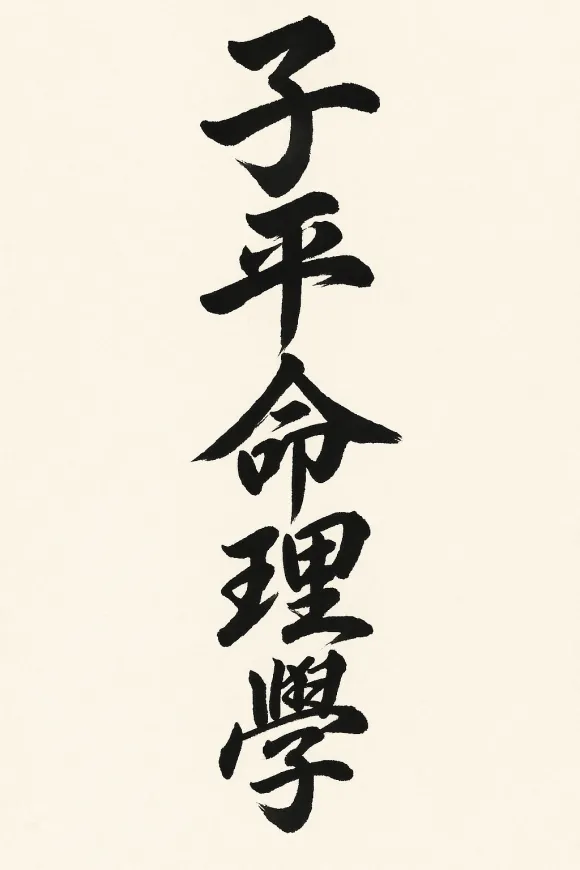 子平命理學